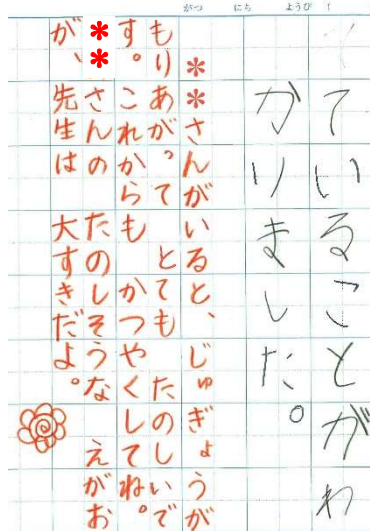 がつ にち ようび
ていることがわ
かりました。
＊＊さんがいると、じゅぎょうが
もりあがって とても たのしいで
す。 これからも かつやくしてね。
＊＊さんの たのしそうな えがお
が、 先生は 大すきだよ。